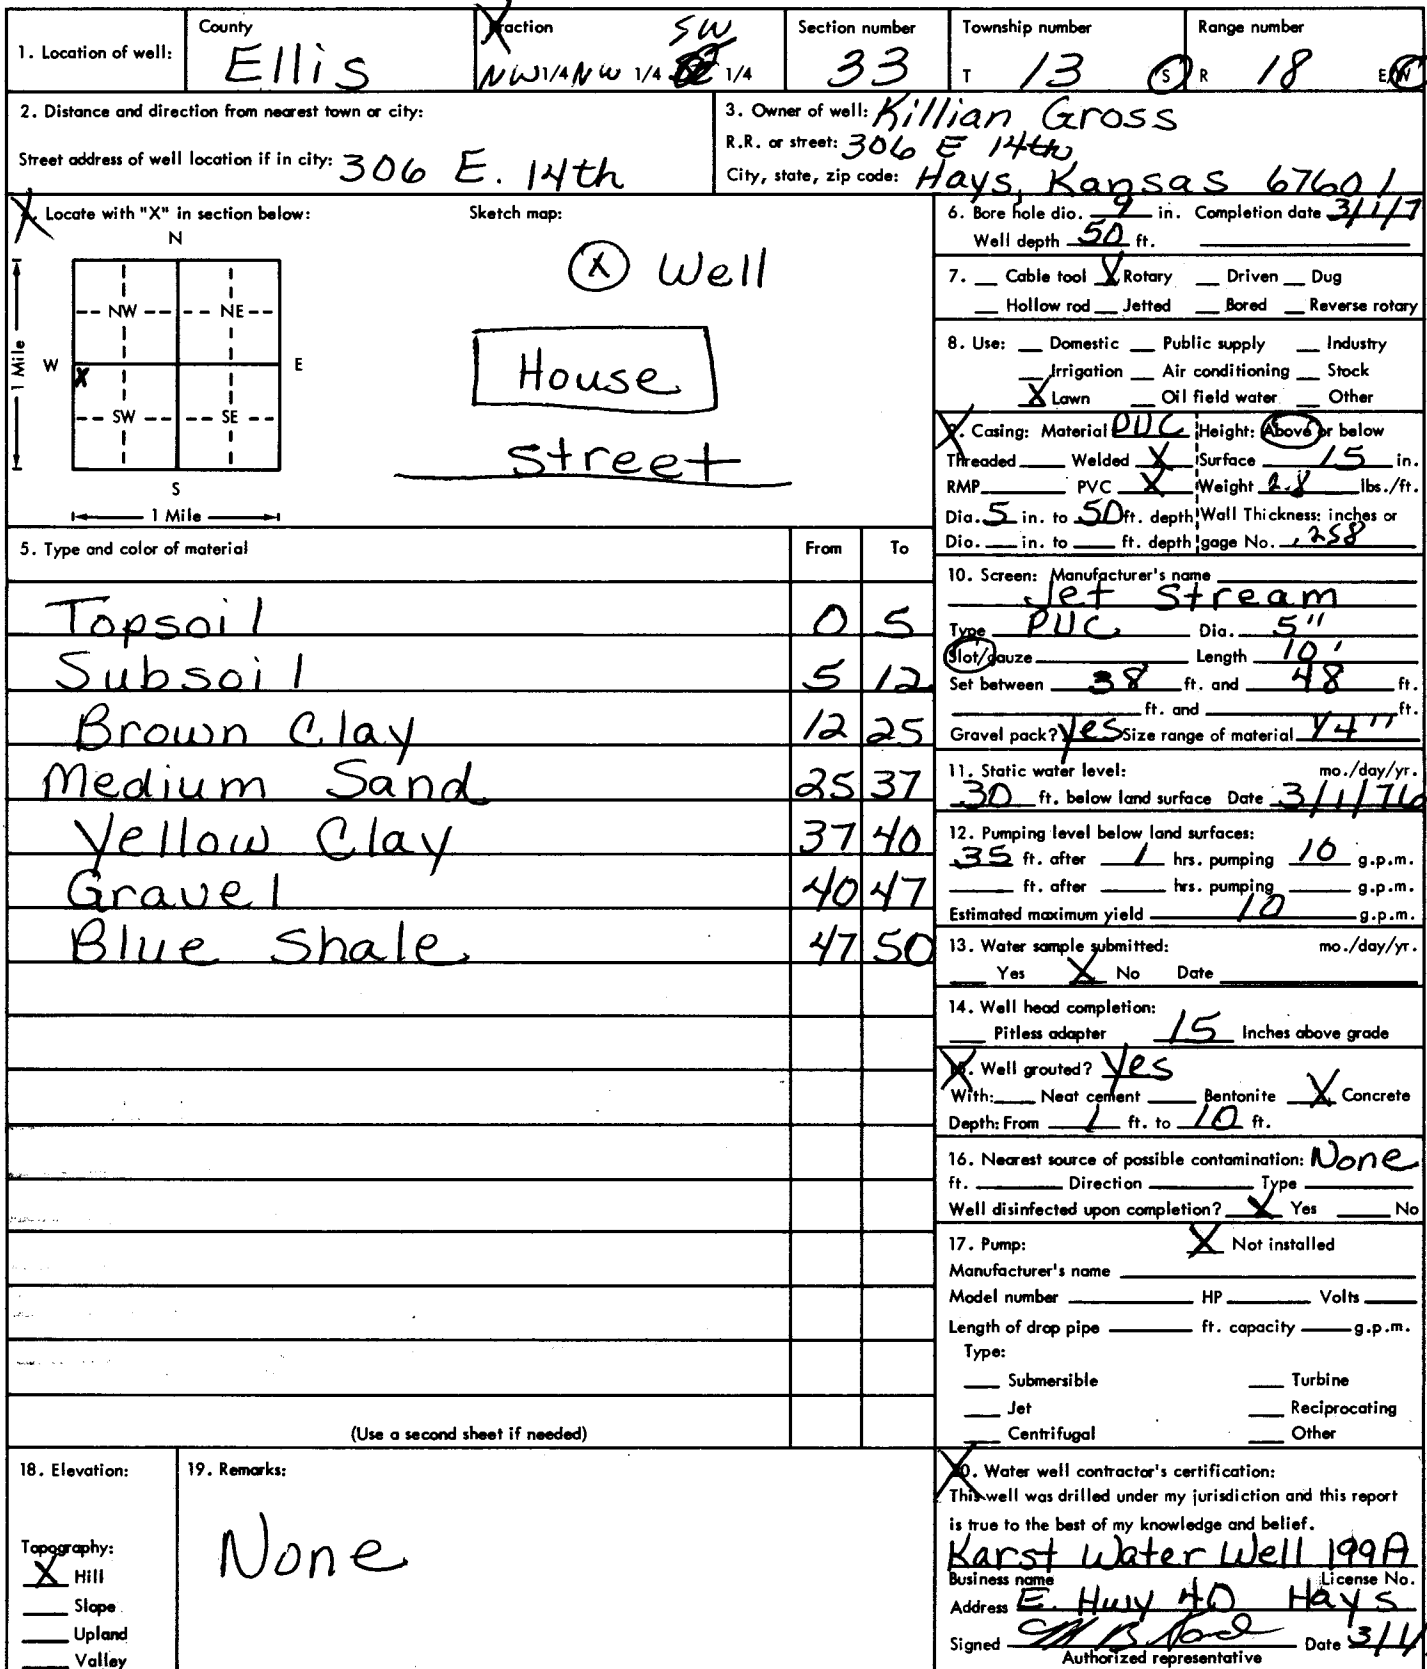 1. Location of well: County Ellis Fraction NW 1/4 NW 1/4 SW 1/4 Section number 33 Township number T 13 S Range number R 18 E/W
2. Distance and direction from nearest town or city:
Street address of well location if in city: 306 E. 14th
3. Owner of well: Killian Gross
R.R. or street: 306 E 14th
City, state, zip code: Hays, Kansas 67601
4. Locate with "X" in section below: Sketch map:
N
NW NE
W E
X
SW SE
S
1 Mile
1 Mile
X Well
House
Street
5. Type and color of material From To
Topsoil 0 5
Subsoil 5 12
Brown Clay 12 25
Medium Sand 25 37
Yellow Clay 37 40
Gravel 40 47
Blue Shale 47 50
(Use a second sheet if needed)
6. Bore hole dia. 9 in. Completion date 3/1/7
Well depth 50 ft.
7. Cable tool X Rotary Driven Dug
Hollow rod Jetted Bored Reverse rotary
8. Use: Domestic Public supply Industry
Irrigation Air conditioning Stock
X Lawn Oil field water Other
9. Casing: Material PVC Height: Above or below
Threaded Welded X Surface 15 in.
RMP PVC X Weight 2.8 lbs./ft.
Dia. 5 in. to 50 ft. depth Wall Thickness: inches or
Dia. in. to ft. depth gage No. .258
10. Screen: Manufacturer's name
Jet Stream
Type PVC Dia. 5"
Slot/gauze Length 10'
Set between 38 ft. and 48 ft.
ft. and ft.
Gravel pack? Yes Size range of material 1/4"
11. Static water level: mo./day/yr.
30 ft. below land surface Date 3/1/76
12. Pumping level below land surfaces:
35 ft. after 1 hrs. pumping 10 g.p.m.
ft. after hrs. pumping g.p.m.
Estimated maximum yield 10 g.p.m.
13. Water sample submitted: mo./day/yr.
Yes X No Date
14. Well head completion:
Pitless adapter 15 Inches above grade
15. Well grouted? Yes
With: Neat cement Bentonite X Concrete
Depth: From 1 ft. to 10 ft.
16. Nearest source of possible contamination: None
ft. Direction Type
Well disinfected upon completion? X Yes No
17. Pump: X Not installed
Manufacturer's name
Model number HP Volts
Length of drop pipe ft. capacity g.p.m.
Type:
Submersible Turbine
Jet Reciprocating
Centrifugal Other
18. Elevation:
Topography:
X Hill
Slope
Upland
Valley
19. Remarks:
None
20. Water well contractor's certification:
This well was drilled under my jurisdiction and this report
is true to the best of my knowledge and belief.
Karst Water Well 199A
Business name License No.
Address E. Hwy 40 Hays
Signed Date 3/1/
Authorized representative